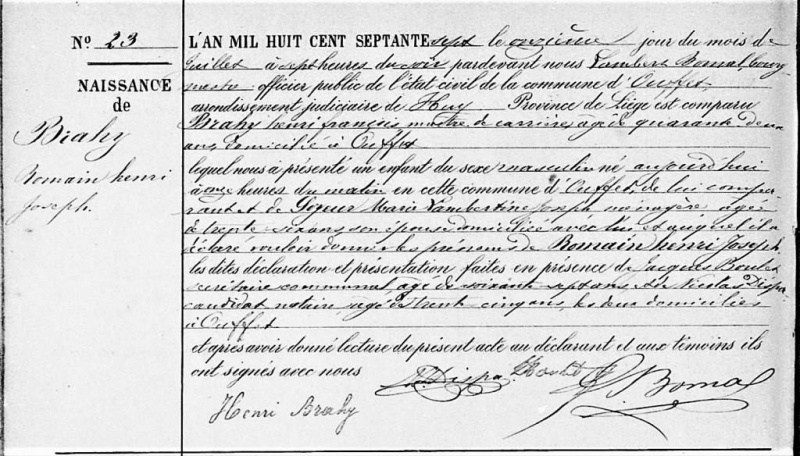 N° 23
NAISSANCE
de
Brahy
Romain henri
Joseph.
L'AN MIL HUIT CENT SEPTANTE sept le onzième jour du mois de
Juillet à sept heures du soir pardevant nous Lambert Bomal, bourg
mestre officier public de l'état civil de la commune d'Ouffet,
arrondissement judiciaire de Huy Province de Liége est comparu
Brahy henri françois maître de carrières, âgé de quarante deux
ans domicilié à Ouffet
lequel nous a présenté un enfant du sexe masculin né aujourd'hui
à onze heures du matin en cette commune d'Ouffet, de lui compa
rant et de Marie Lambertine Joseph ménagère âgée
de trente six ans son épouse domiciliée avec lui et auquel il a
déclaré vouloir donner les prénoms de Romain henri Joseph
les dites déclaration et présentation faites en présence de Jacques Boulet
secrétaire communal âgé de soixante sept ans et de Nicolas Dispa
candidat notaire, âgé de trente cinq ans, les deux domiciliés
à Ouffet
et après avoir donné lecture du présent acte au déclarant et aux témoins ils
ont signés avec nous
N. Dispa Boulet L. Bomal
Henri Brahy